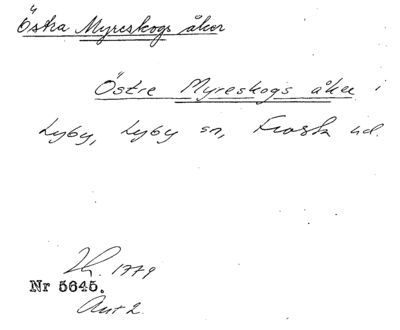 Östra Myreskogs åker
Östre Myreskogs åker i
Lyby, Lyby sn, Frosta hd.
1779
Nr 5645.
Akt 2.